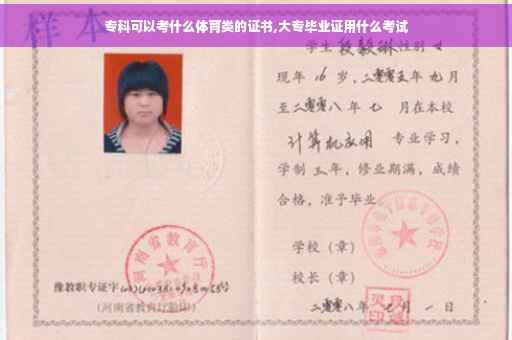 专科可以考什么体育类的证书,大专毕业证用什么考试
样本
学生段毅琳性别女
现年16岁,二零零五年九月
至二零零八年七 月在本校
计算机应用 专业学习,
学制三年,修业期满,成绩
合格,准予毕业
学校(章)
校长(章)
二零零八年 月一日
河南省教育厅
豫教职专证字
(河南省教育厅验印)